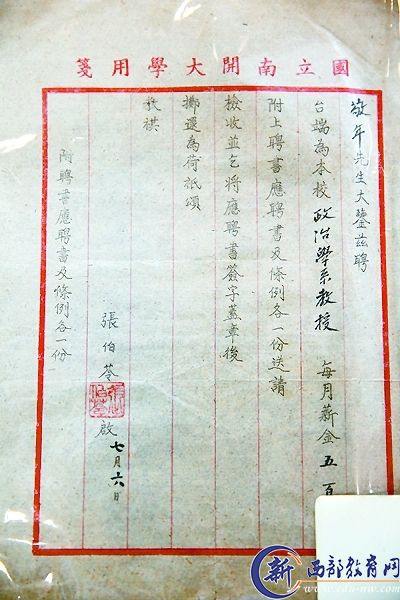 國立南開大學用箋
敬年先生大鑒茲聘
台端為本校政治學系教授 每月薪金五百
附上聘書應聘書及條例各一份送請
檢收並乞將應聘書簽字蓋章後
擲還為荷祗頌
教祺
張伯苓 啟 七月六日
附聘書應聘書及條例各一份
新西部教育网
www.edu-nw.com